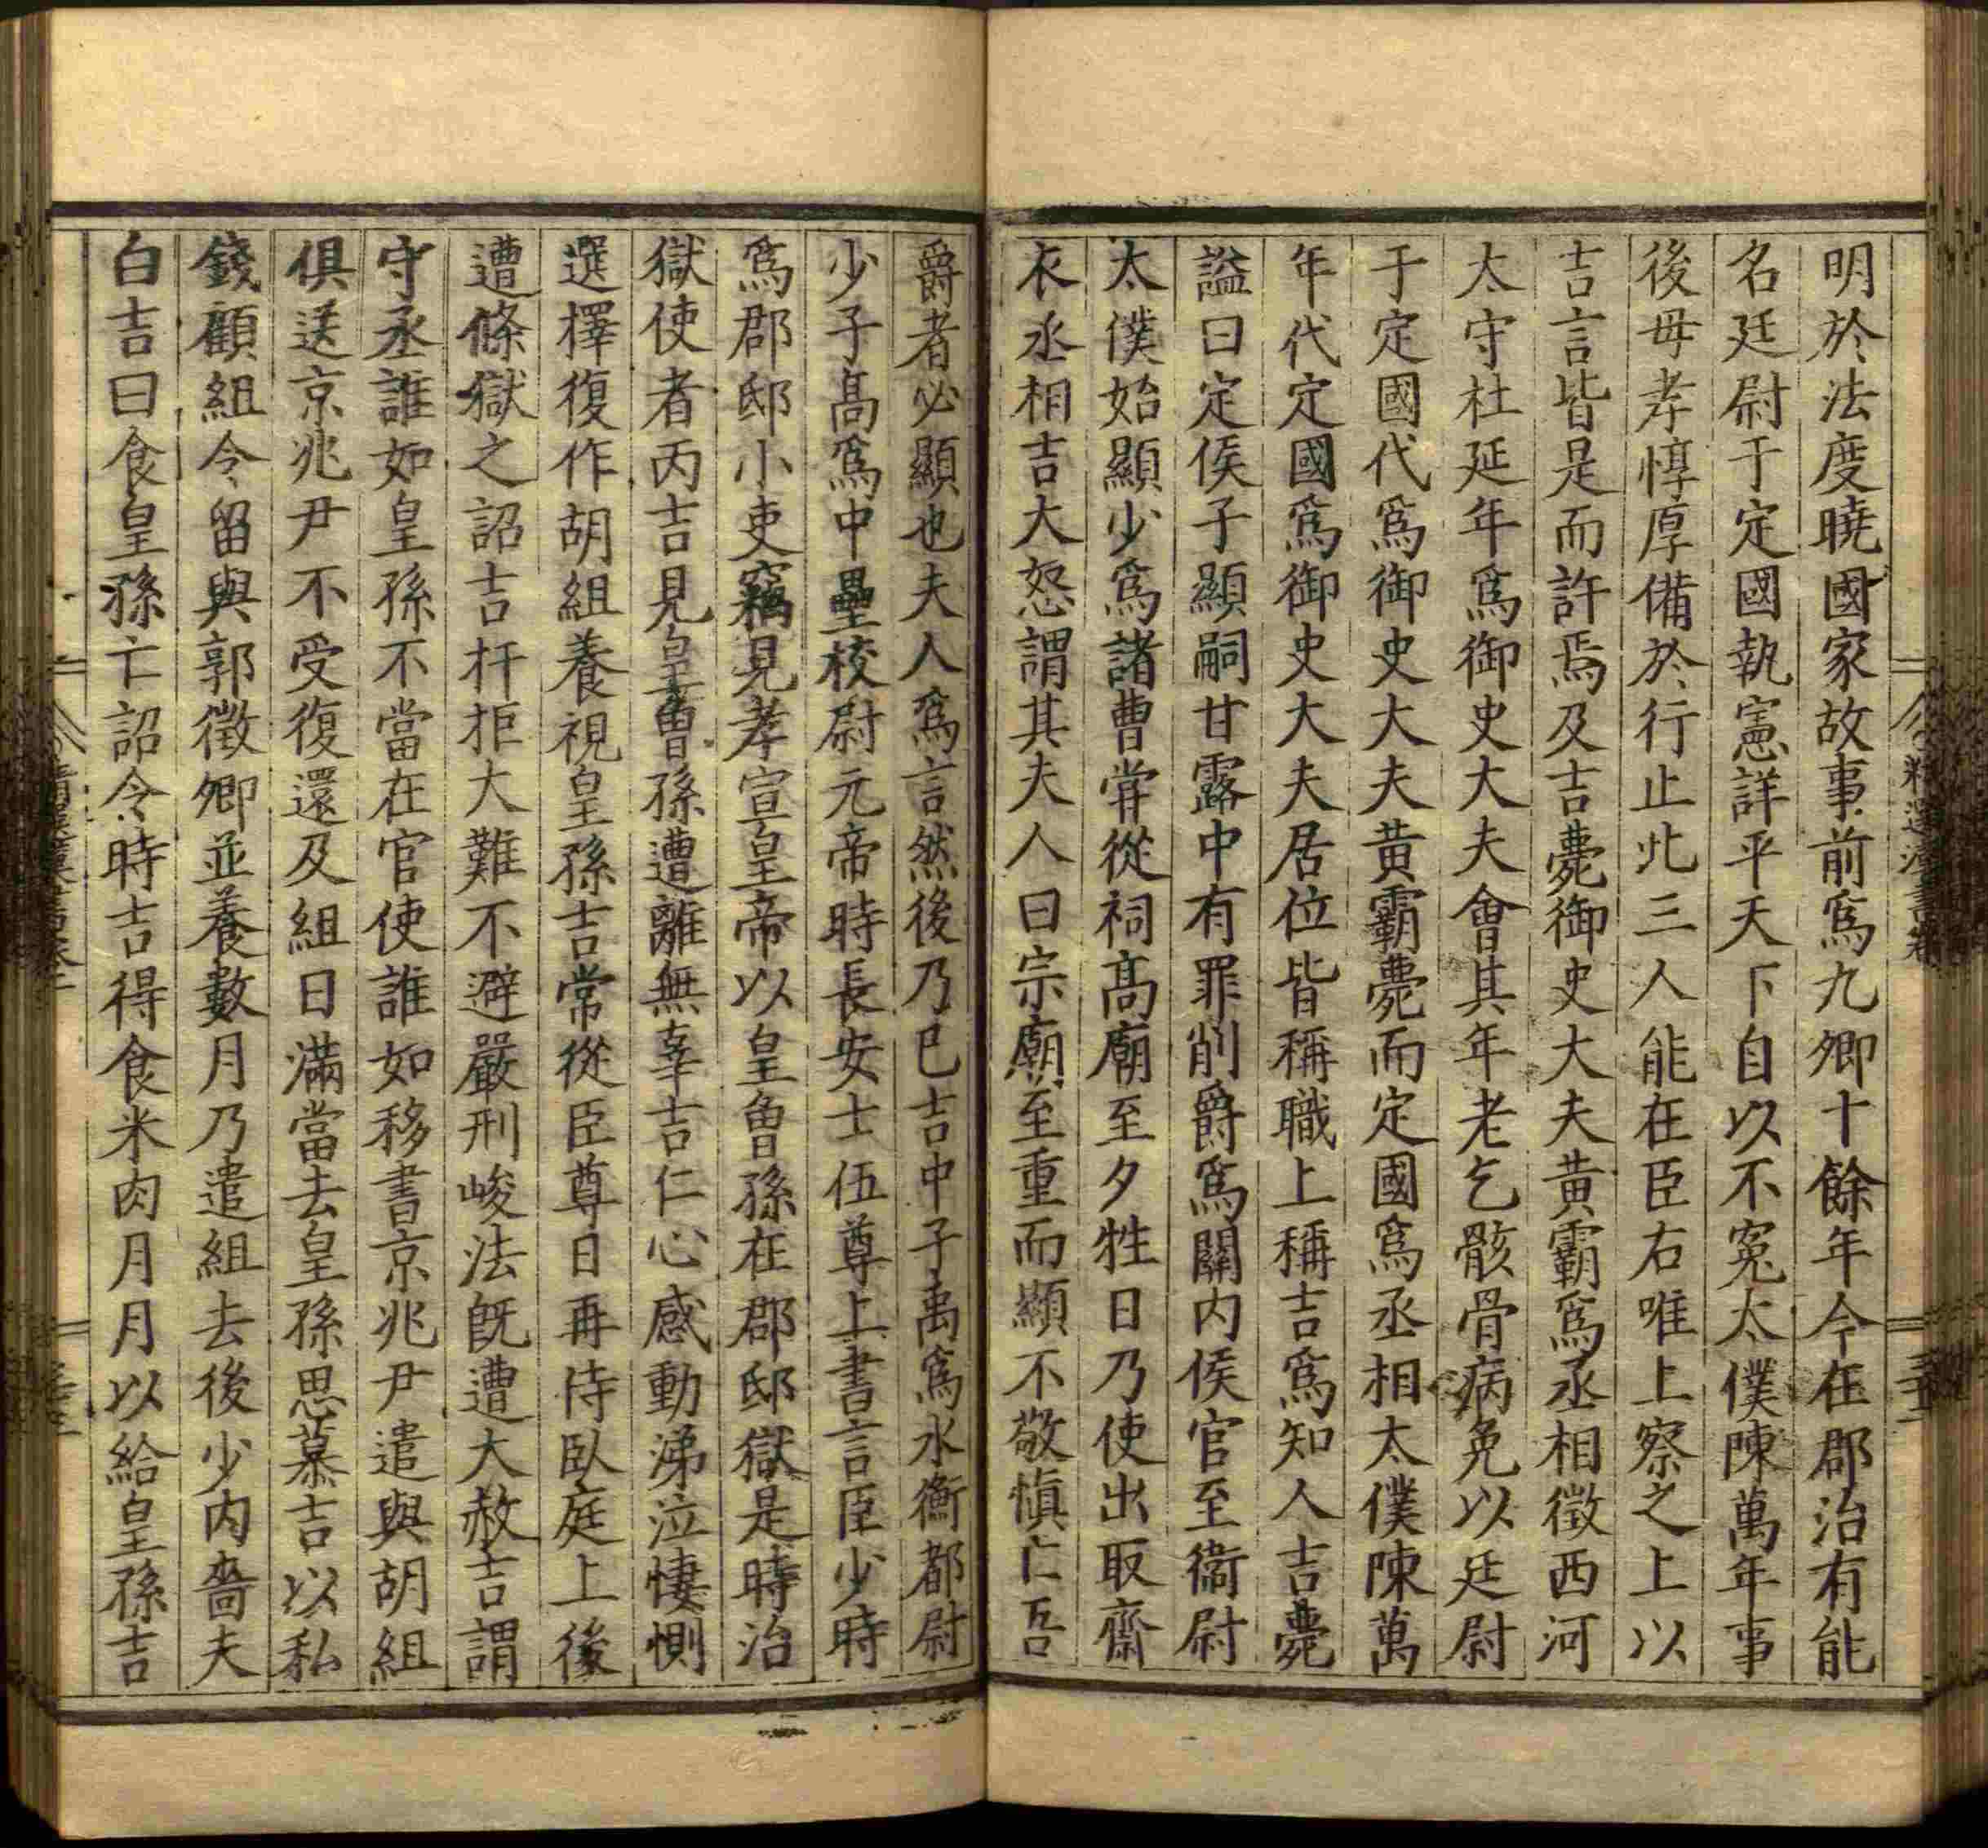 明於法度曉國家故事前爲九卿十餘年今在郡治有能
名廷尉于定國執憲詳平天下自以不冤太僕陳萬年事
後母孝惇厚備於行止此三人能在臣右唯上察之上以
吉言皆是而許焉及吉薨御史大夫黃霸爲丞相徵西河
太守杜延年爲御史大夫會其年老乞骸骨病免以廷尉
于定國代爲御史大夫黃霸薨而定國爲丞相太僕陳萬
年代定國爲御史大夫居位皆稱職上稱吉爲知人吉薨
謚曰定侯子顯嗣甘露中有罪削爵爲關内侯官至衞尉
太僕始顯少爲諸曹甞從祠高廟至夕牲日乃使出取齋
衣丞相吉大怒謂其夫人曰宗廟至重而顯不敬愼亡吾
爵者必顯也夫人爲言然後乃已吉中子禹爲水衡都尉
少子高爲中壘校尉元帝時長安士伍尊上書言臣少時
爲郡邸小吏竊見孝宣皇帝以皇曾孫在郡邸獄是時治
獄使者丙吉見皇曾孫遭離無辜吉仁心感動涕泣悽惻
選擇復作胡組養視皇孫吉常從臣尊日再侍臥庭上後
遭條獄之詔吉扞拒大難不避嚴刑峻法旣遭大赦吉謂
守丞誰如皇孫不當在官使誰如移書京兆尹遣與胡組
俱送京兆尹不受復還及組日滿當去皇孫思慕吉以私
錢顧組令留與郭徵卿並養數月乃遣組去後少内嗇夫
白吉曰食皇孫亡詔令時吉得食米肉月月以給皇孫吉